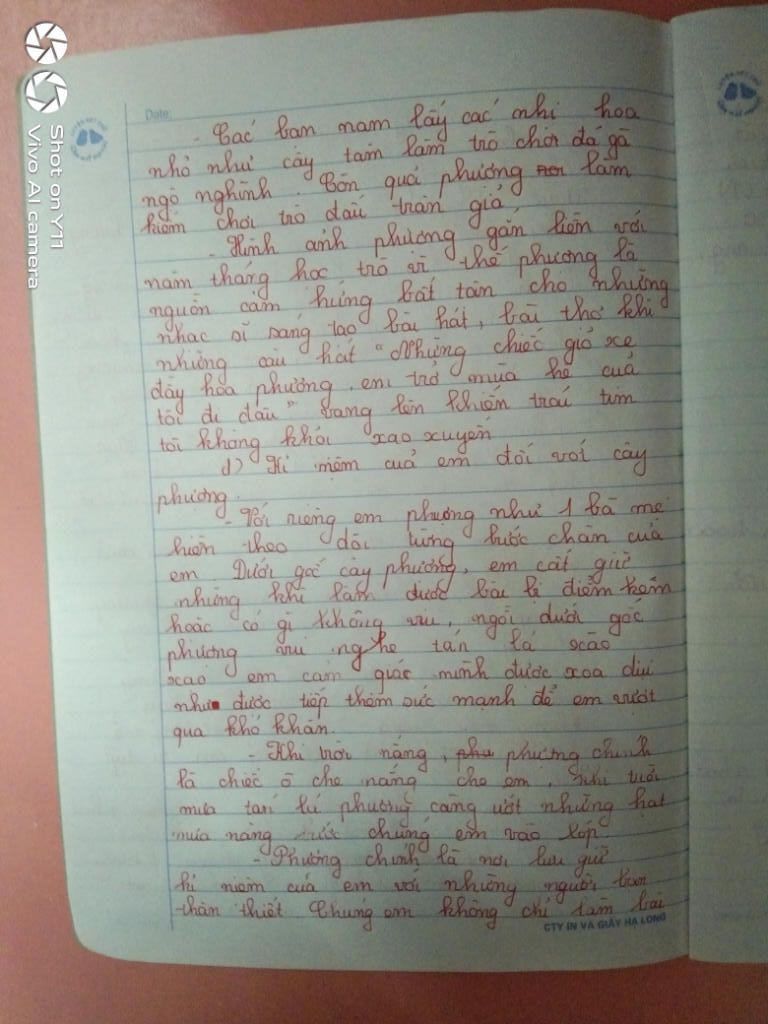 Shot on Y11
Vivo AI camera
Date:
- Các bạn nam lấy các nhị hoa
nhỏ như cây tăm làm trò chơi đá gà
ngộ nghĩnh. Còn quả phượng làm
kiếm chơi trò đấu trận giả
- Hình ảnh phượng gắn liền với
năm tháng học trò vì thế phượng là
nguồn cảm hứng bất tận cho những
nhạc sĩ sáng tạo bài hát, bài thơ khi
những câu hát "Những chiếc giỏ xe
đầy hoa phượng, em trở mùa hè của
tôi đi đâu" vang lên khiến trái tim
tôi không khỏi xao xuyến
d) Kỉ niệm của em đối với cây
phượng.
- Với riêng em phượng như 1 bà mẹ
hiền theo dõi từng bước chân của
em Dưới gốc cây phượng, em cất giữ
những khi làm được bài bị điểm kém
hoặc có gì không vui, ngồi dưới gốc
phượng vui nghe tán lá xào
xạc em cảm giác mình được xoa dịu
như được tiếp thêm sức mạnh để em vượt
qua khó khăn.
- Khi trời nắng, phượng chính
là chiếc ô che nắng cho em,
mưa tán lá phượng càng ướt những hạt
mưa nặng chúng em vào lớp
- Phượng chính là nơi lưu giữ
kỉ niệm của em với những người bạn
thân thiết Chúng em không chỉ làm bài
CTY IN VÀ GIẤY HẠ LONG